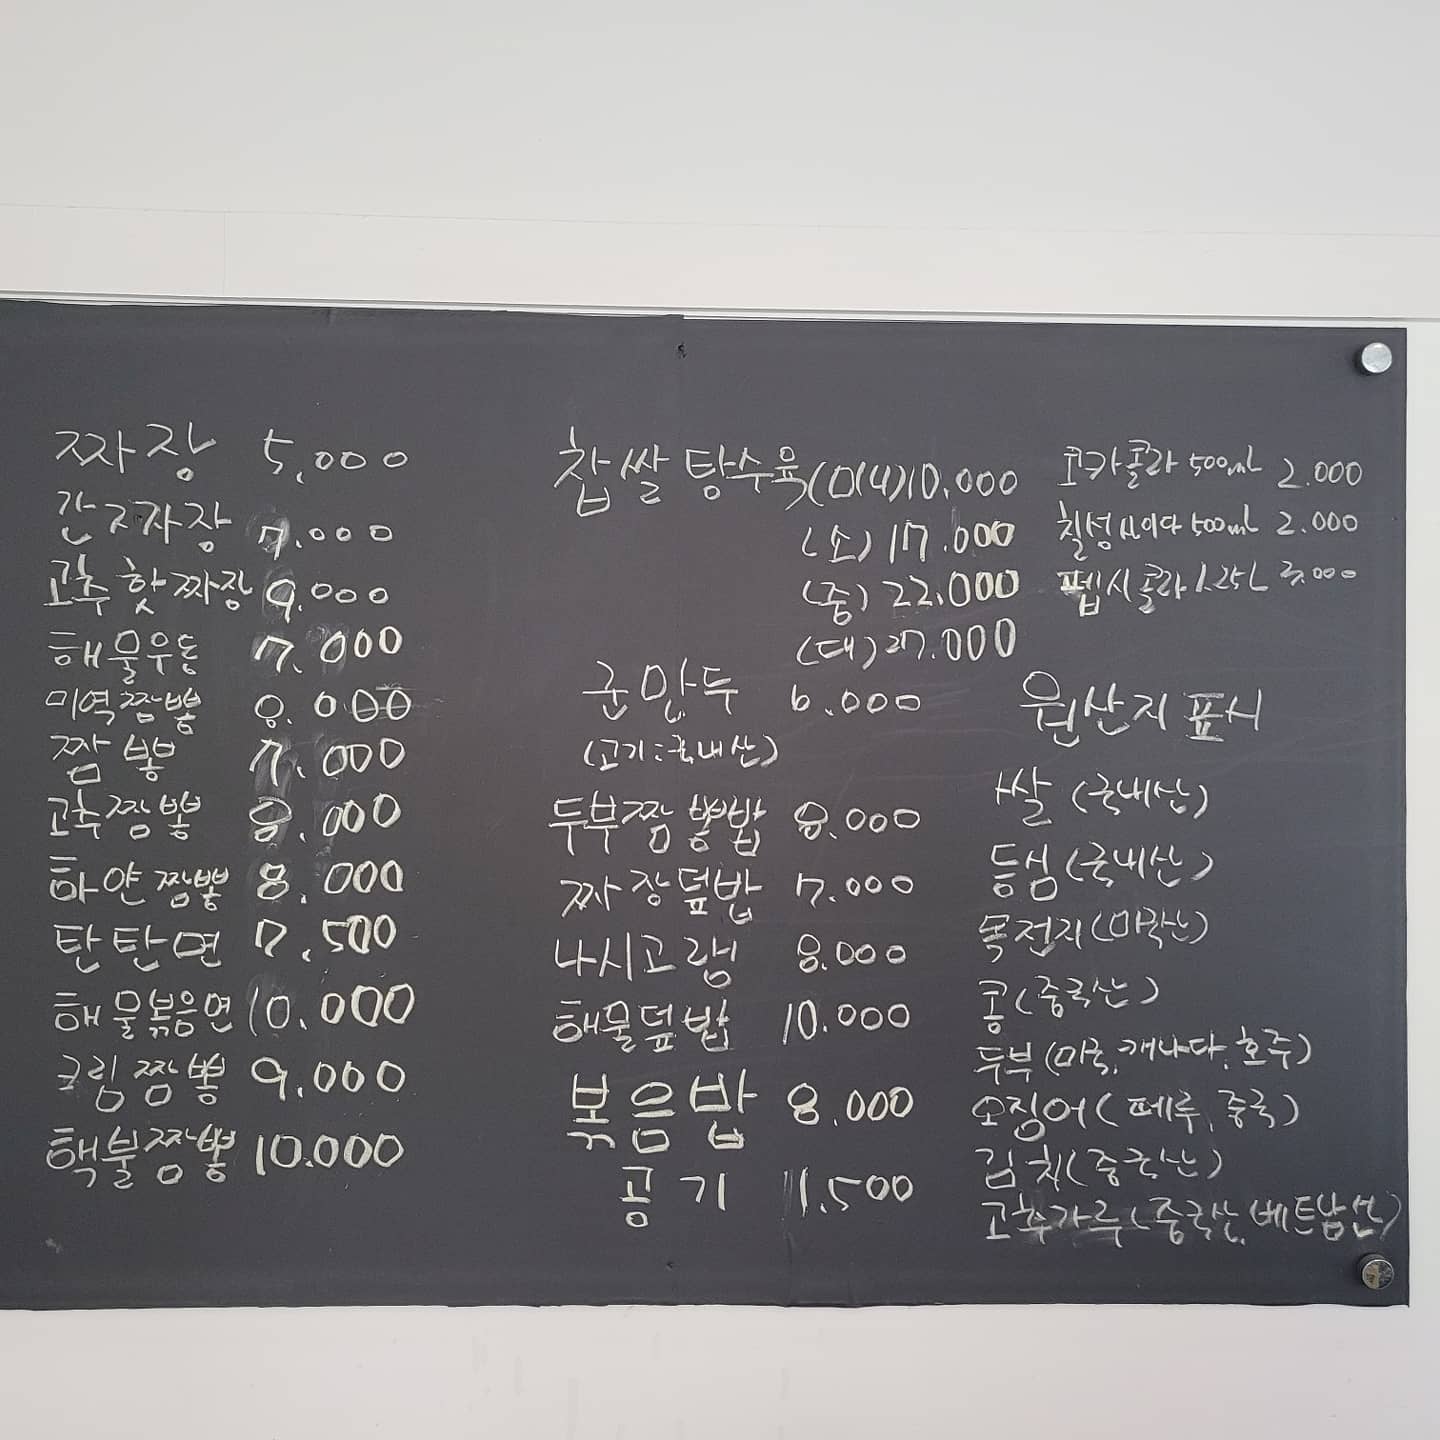 짜장 5,000
간짜장 7.000
고추핫짜장 9.000
해물우동 7.000
미역짬뽕 8.000
짬뽕 7.000
고추짬뽕 8.000
하얀짬뽕 8.000
탄탄면 7.500
해물볶음면 10.000
크림짬뽕 9.000
핵불짬뽕 10.000
찹쌀탕수육(미니)10.000
(소)17.000
(중)22.000
(대)27.000
군만두 6.000
(고기:국내산)
두부짬뽕밥 8.000
짜장덮밥 7.000
나시고랭 8.000
해물덮밥 10.000
볶음밥 8.000
공기 1.500
코카콜라 500ml 2.000
칠성사이다 500ml 2.000
펩시콜라 1.25L 3.000
원산지 표시
쌀(국내산)
등심(국내산)
목전지(미국산)
콩(중국산)
두부(미국,캐나다,호주)
오징어(페루,중국)
김치(중국산)
고추가루(중국산,베트남산)